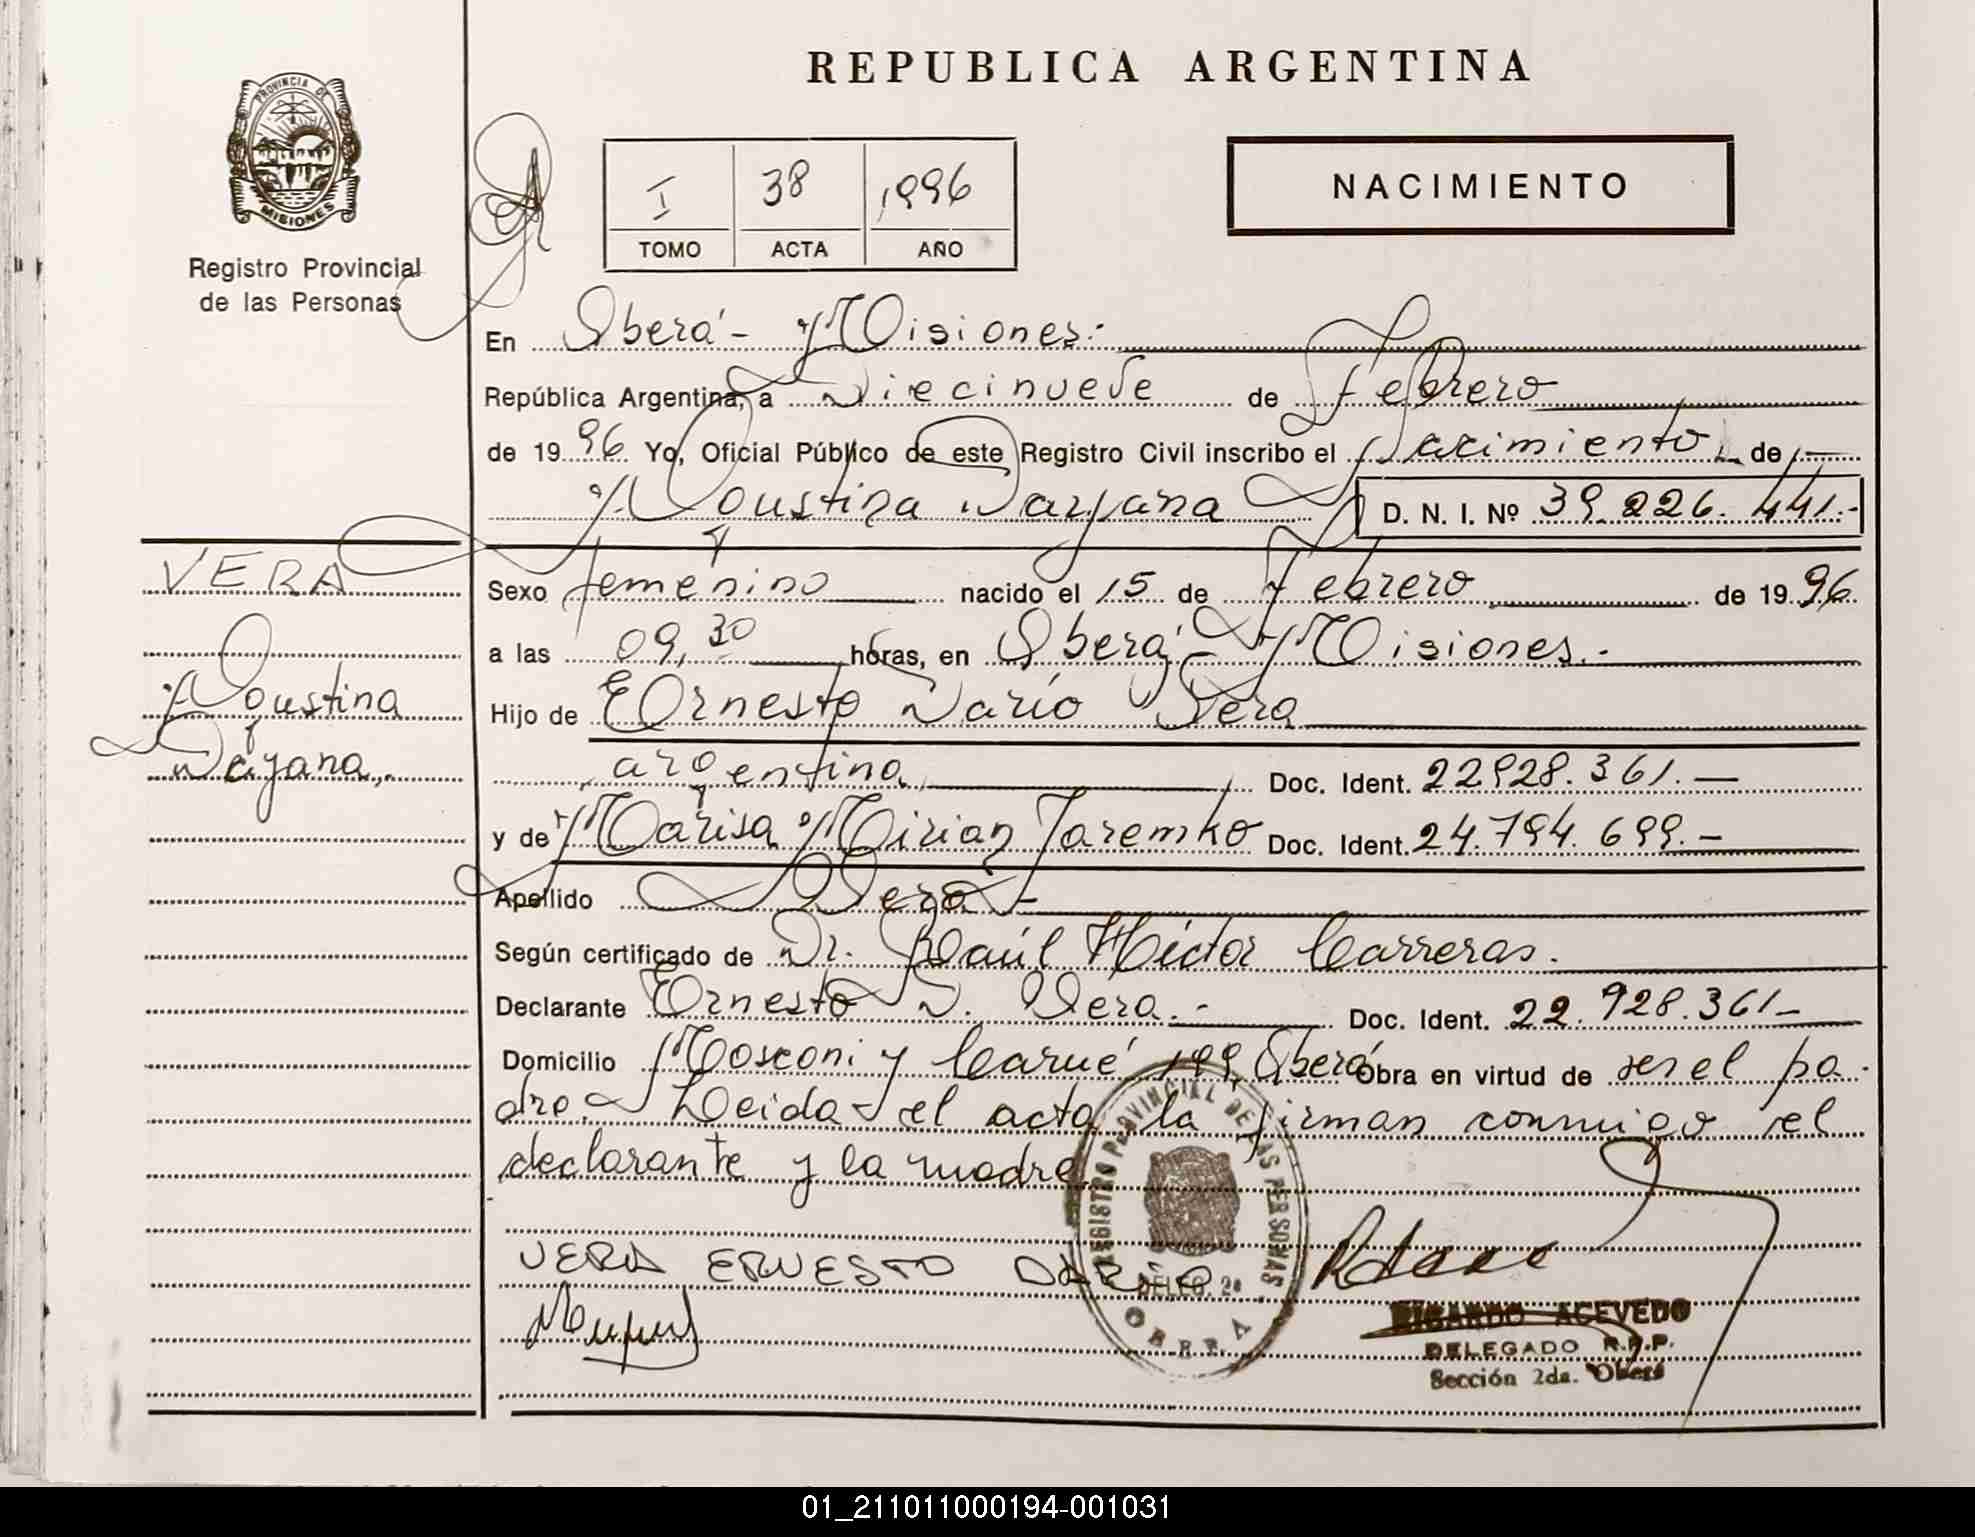 REPUBLICA ARGENTINA
PROVINCIA DE
MISIONES
Registro Provincial
de las Personas
I 38 1996
TOMO ACTA AÑO
NACIMIENTO
En Oberá - Misiones.-
República Argentina, a Diecinueve de Febrero
de 1996 Yo, Oficial Público de este Registro Civil inscribo el Nacimiento de
Agustina Dayana D. N. I. Nº 39.226.441.-
VERA
Agustina
Dayana,.
Sexo femenino nacido el 15 de Febrero de 1996
a las 09,30 horas, en Oberá - Misiones.-
Hijo de Ernesto Darío Vera
argentina Doc. Ident. 22928.361.-
y de Marisa Mirian Jaremko Doc. Ident. 24.794.699.-
Apellido Vera -
Según certificado de Dr. Raúl Héctor Carreras.
Declarante Ernesto D. Vera.- Doc. Ident. 22.928.361-
Domicilio Mosconi y Carué 199, Oberá Obra en virtud de ser el pa-
dre.- Leida el acta, la firman conmigo el
declarante y la madre
REGISTRO PROVINCIAL DE LAS PERSONAS
DELEG. 2a
OBERA
VERA ERNESTO DARÍO
RICARDO ACEVEDO
DELEGADO R.P.P.
Sección 2da. Oberá
01_211011000194-001031